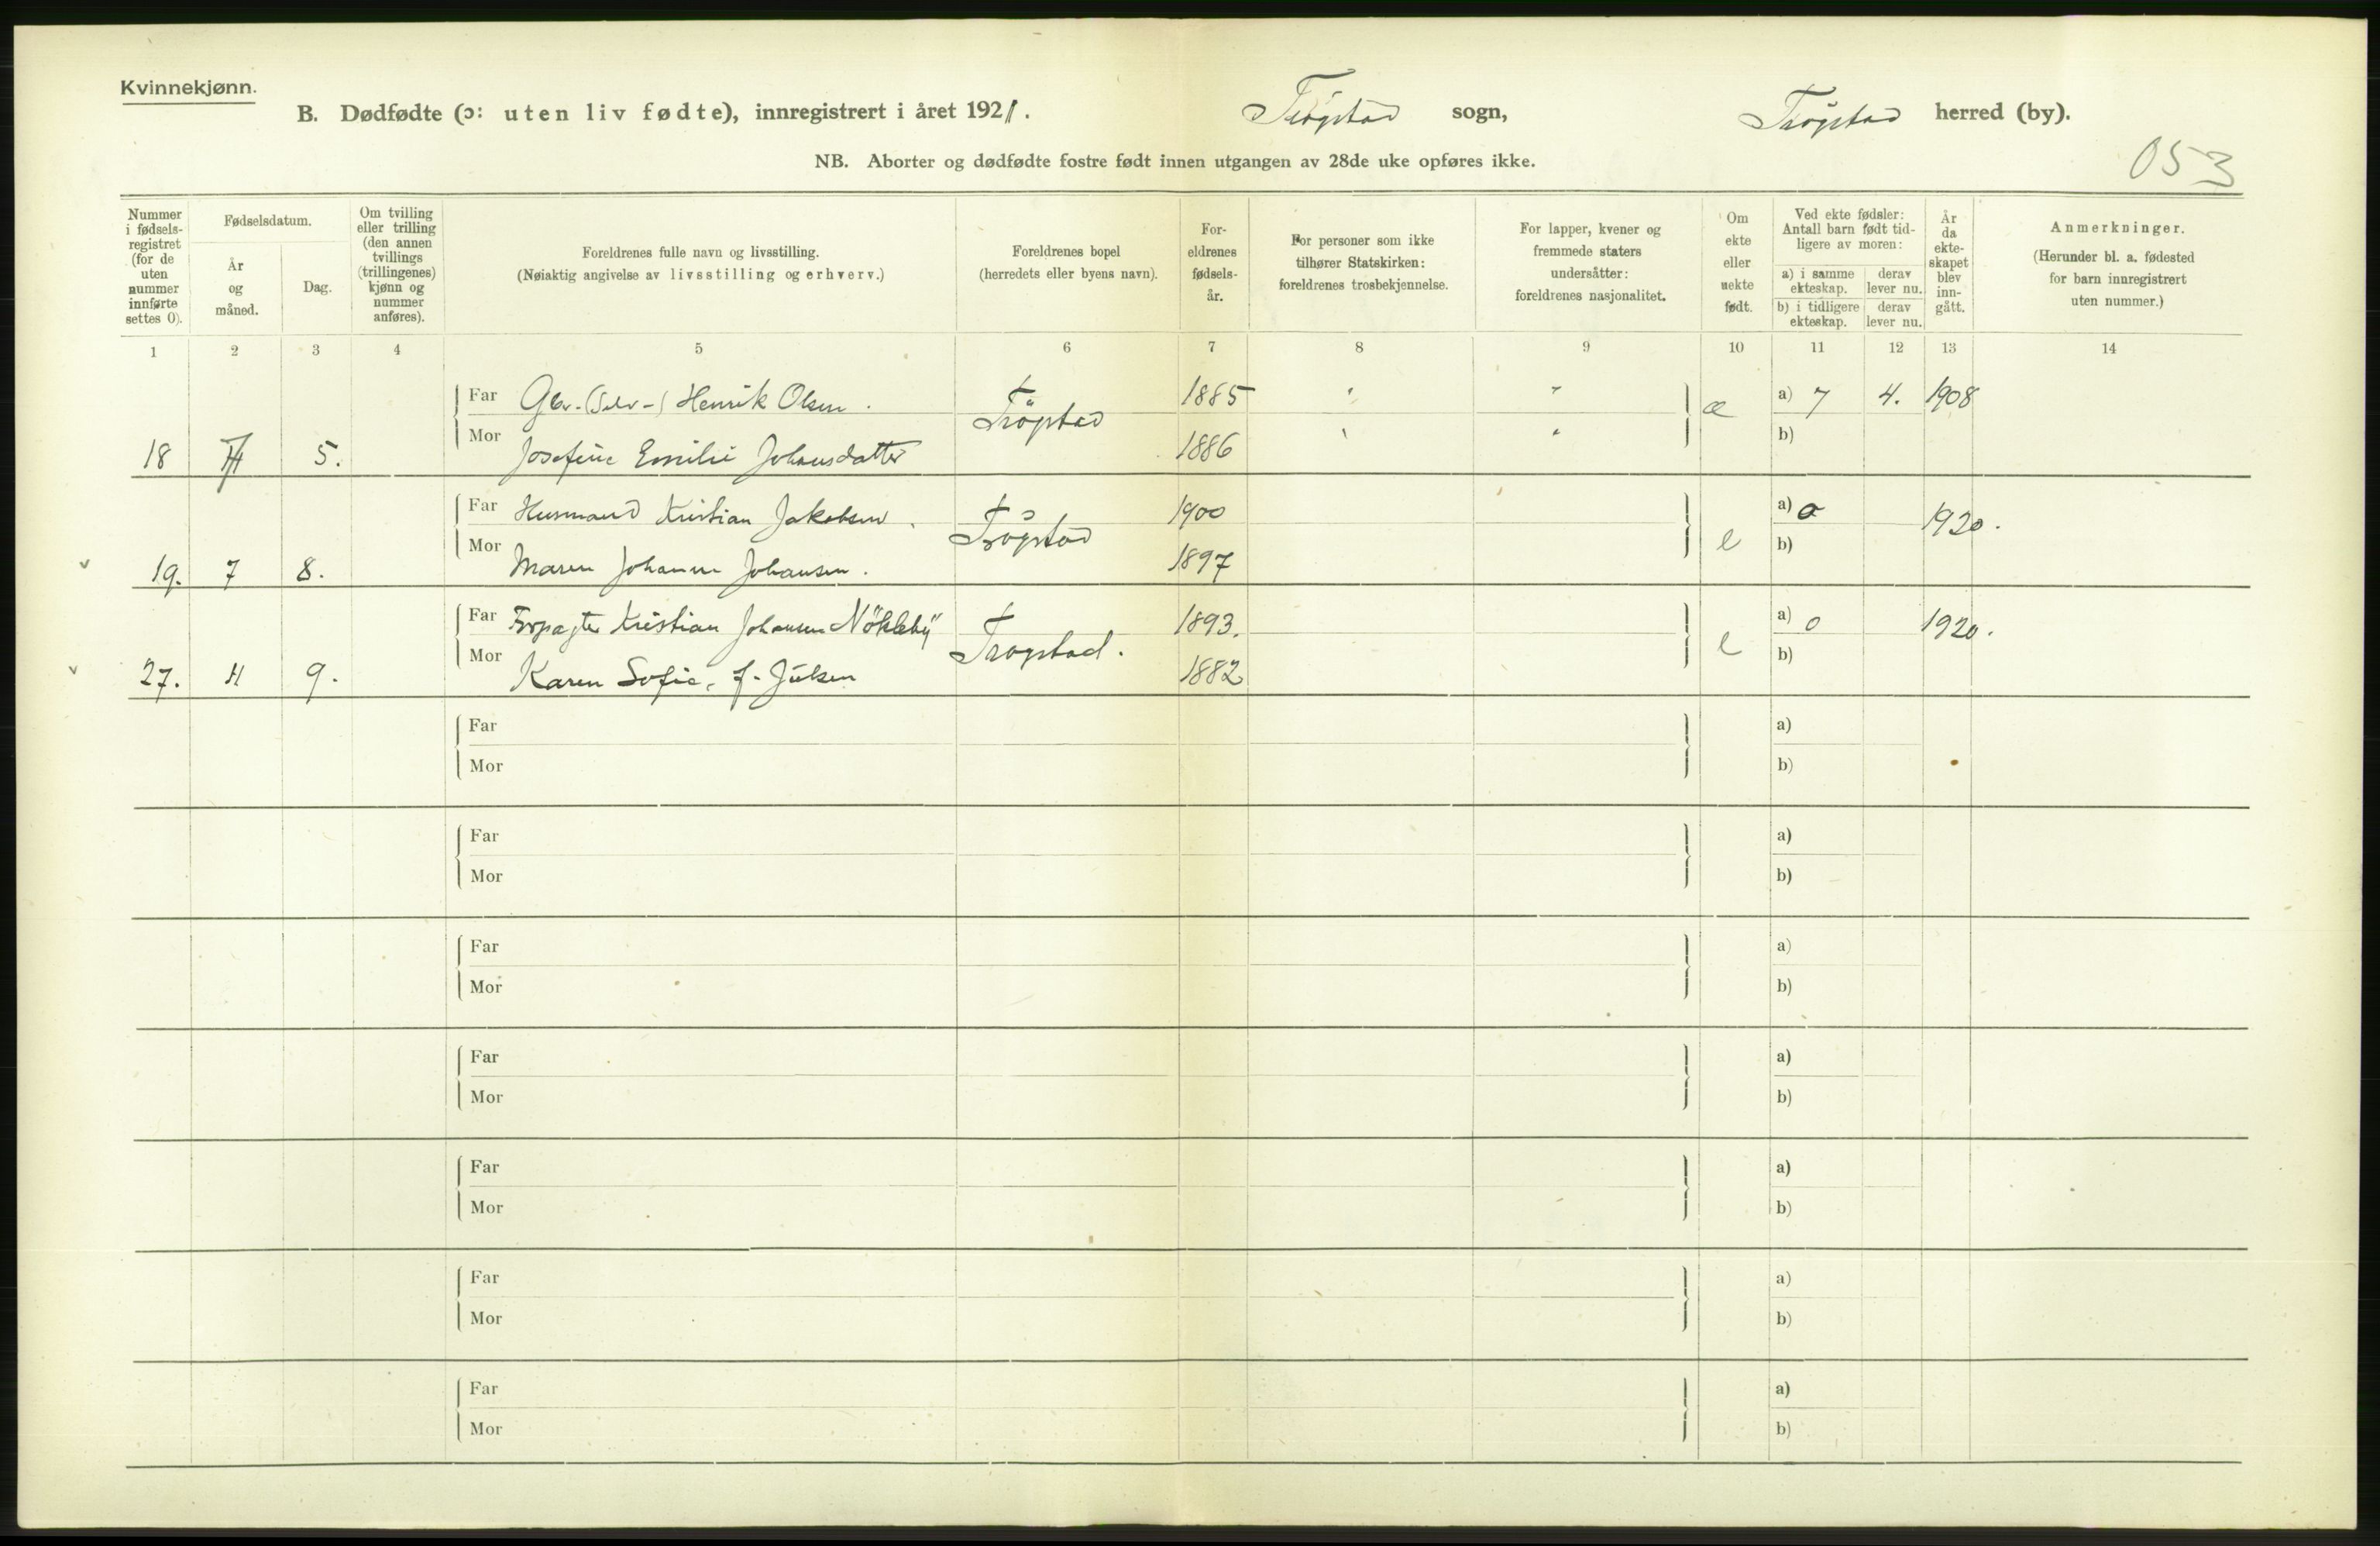 Kvinnekjønn.
B. Dødfødte (ɔ: uten liv fødte), innregistrert i året 1921. Trögstad sogn, Trögstad herred (by).
NB. Aborter og dødfødte fostre født innen utgangen av 28de uke opføres ikke.
053
Nummer i fødsels-registret (for de uten nummer innførte settes 0).
Fødselsdatum.
År og måned.
Dag.
Om tvilling eller trilling (den annen tvillings (trillingenes) kjønn og nummer anføres).
Foreldrenes fulle navn og livsstilling.
(Nøiaktig angivelse av livsstilling og erhverv.)
Foreldrenes bopel
(herredets eller byens navn).
For-eldrenes fødsels-år.
For personer som ikke tilhører Statskirken: foreldrenes trosbekjennelse.
For lapper, kvener og fremmede staters undersåtter: foreldrenes nasjonalitet.
Om ekte eller uekte født.
Ved ekte fødsler: Antall barn født tid-ligere av moren:
a) i samme ekteskap.
derav lever nu.
b) i tidligere ekteskap.
derav lever nu.
År da ekte-skapet blev inn-gått.
Anmerkninger.
(Herunder bl. a. fødested for barn innregistrert uten nummer.)
1 2 3 4 5 6 7 8 9 10 11 12 13 14
Far Gbr. (Selv-) Henrik Olsen. Trögstad 1885 " " a) 7 4. 1908
Mor Josefine Emilie Johansdatter 1886 " " b)
18 5. æ
Far Husmand Kristian Jakobsen. Trögstad 1900 a) 0 1920.
Mor Maren Johanne Johansen. 1897 b)
19. 7 8. e
Far Forpagter Kristian Johansen Nökleby Trogstad. 1893. a) 0 1920.
Mor Karen Sofie, f. Julsen 1882 b)
27. 11 9. e
Far a)
Mor b)
Far a)
Mor b)
Far a)
Mor b)
Far a)
Mor b)
Far a)
Mor b)
Far a)
Mor b)
Far a)
Mor b)